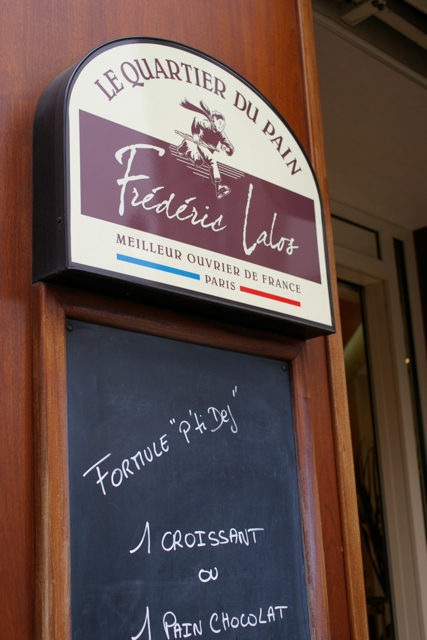 LE QUARTIER DU PAIN
Frédéric Lalos
MEILLEUR OUVRIER DE FRANCE
PARIS
FORMULE "p'ti Dej"
1 CROISSANT
ou
1 PAIN CHOCOLAT